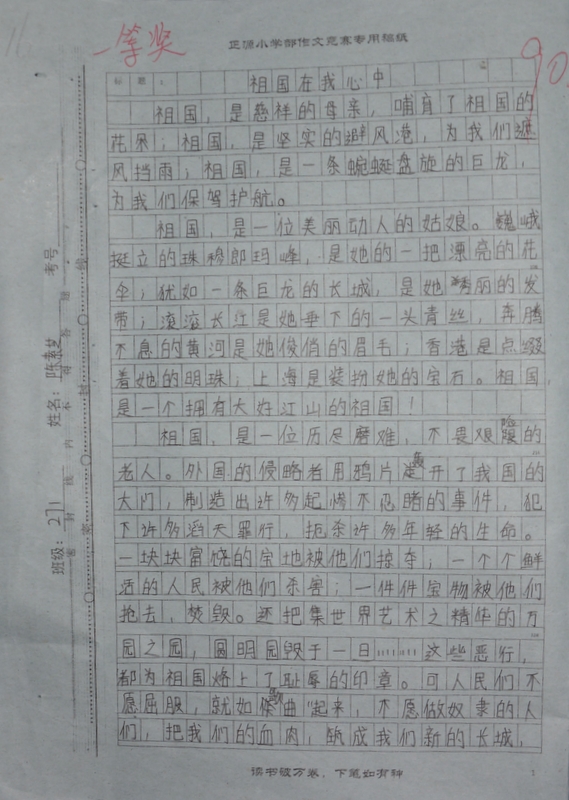 一等奖
正源小学部作文竞赛专用稿纸
90
标题：
祖国在我心中
祖国，是慈祥的母亲，哺育了祖国的
花朵；祖国，是坚实的避风港，为我们遮
风挡雨；祖国，是一条蜿蜒盘旋的巨龙，
为我们保驾护航。
祖国，是一位美丽动人的姑娘。巍峨
挺立的珠穆郎玛峰，是她的一把漂亮的花
伞；犹如一条巨龙的长城，是她秀丽的发
带；滚滚长江是她垂下的一头青丝，奔腾
不息的黄河是她俊俏的眉毛；香港是点缀
着她的明珠；上海是装扮她的宝石。祖国，
是一个拥有大好江山的祖国！
祖国，是一位历尽磨难，不畏艰险的
老人。外国的侵略者用鸦片轰开了我国的
大门，制造出许多起惨不忍睹的事件，犯
下许多滔天罪行，扼杀许多年轻的生命。
一块块富饶的宝地被他们掠夺；一个个鲜
活的人民被他们杀害；一件件宝物被他们
抢去，焚毁。还把集世界艺术之精华的万
园之园，圆明园毁于一旦……这些恶行，
都为祖国烙上了耻辱的印章。可人民们不
愿屈服，就如歌曲"起来，不愿做奴隶的人
们，把我们的血肉，筑成我们新的长城，
读书破万卷，下笔如有神
1
班级：271
姓名：陈素梦
考号
密封线内不